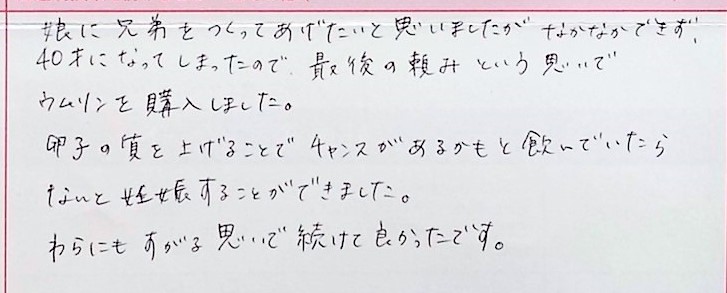 娘に兄弟をつくってあげたいと思いましたがなかなかできず、
40才になってしまったので、最後の頼みという思いで
ウムリンを購入しました。
卵子の質を上げることでチャンスがあるかもと飲んでいたら
なんと妊娠することができました。
わらにもすがる思いで続けて良かったです。